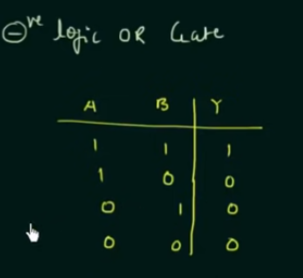 ⊖ve logic OR Gate
A B Y
1 1 1
1 0 0
0 1 0
0 0 0